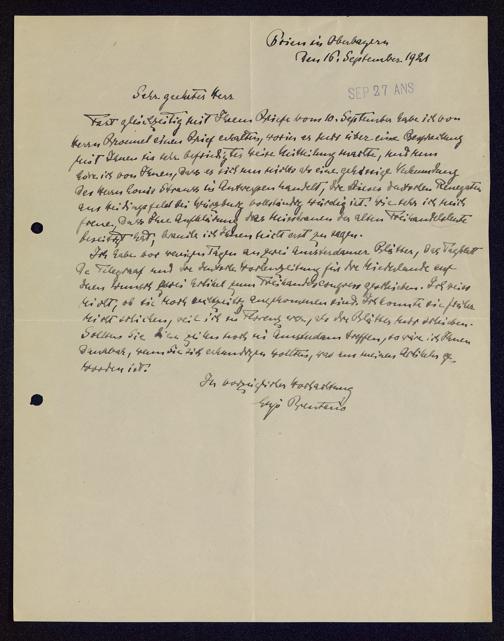 Prien in Oberbayern
den 16. September 1921
SEP 27 ANS
Sehr geehrter Herr
Fast gleichzeitig mit Ihrem Briefe vom 10. September habe ich von
Herrn Broemel einen Brief erhalten, worin er mir über eine Besprechung
mit Ihnen in sehr befriedigter Weise Mitteilung machte, und nun
höre ich von Ihnen, dass es sich um nichts als eine gehässige Erfindung
des Herrn Louis Strauss in Antwerpen handelt, die dieses deutschen Renegaten
aus Heidingsfeld bei Würzburg vollständig würdig ist. Wie sehr ich mich
freue, dass Ihre Aufklärung das Misstrauen der alten Freihandelsleute
beseitigt hat, brauche ich Ihnen nicht erst zu sagen.
Ich habe vor wenigen Tagen an zwei Amsterdamer Blätter, das Tagblatt
De Telegraaf und die deutsche Wochenzeitung für die Niederlande auf
deren Wunsch zwei Artikel zum Freihandelscongress geschrieben. Ich weiss
nicht, ob sie noch angekommen sind. Ich konnte sie früher
nicht schicken, weil ich in war, als die Blätter mir schrieben.
Sollten Sie diese Zeilen noch in Amsterdam treffen, so wäre ich Ihnen
dankbar, wenn Sie sich erkundigen wollten, was aus meinen Artikeln ge-
worden ist.
In vorzüglicher Hochachtung
Lujo Brentano